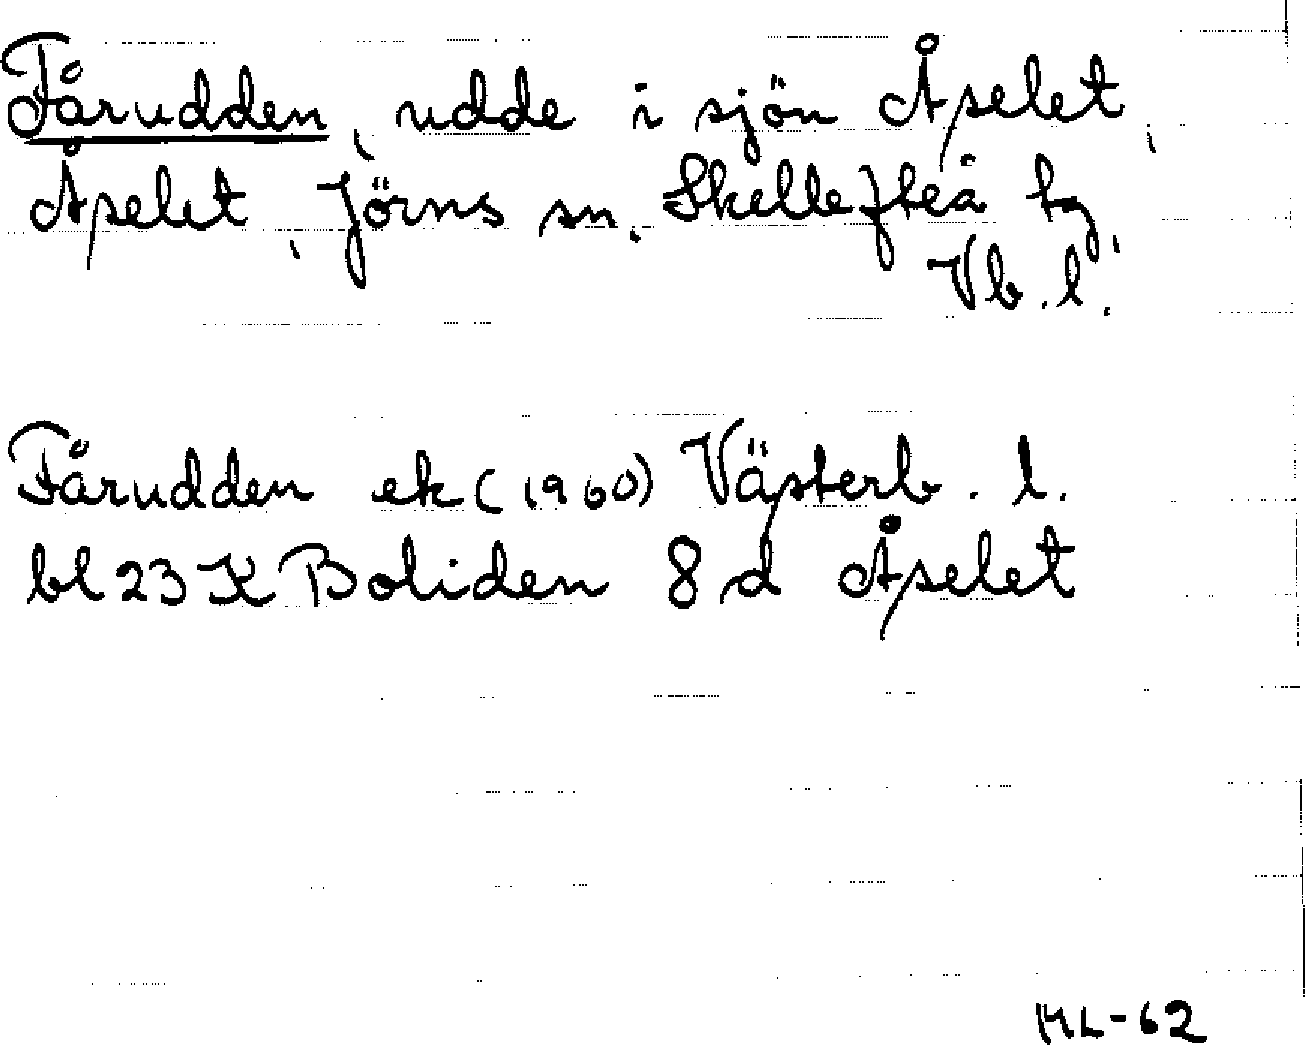 Fårudden, udde i sjön Åpselet,
Åpselet, Jörns sn, Skellefteå tg,
Vb.l.
Fårudden ek (1960) Västerb. l.
bl 23 K Boliden 8 d Åpselet
ML-62